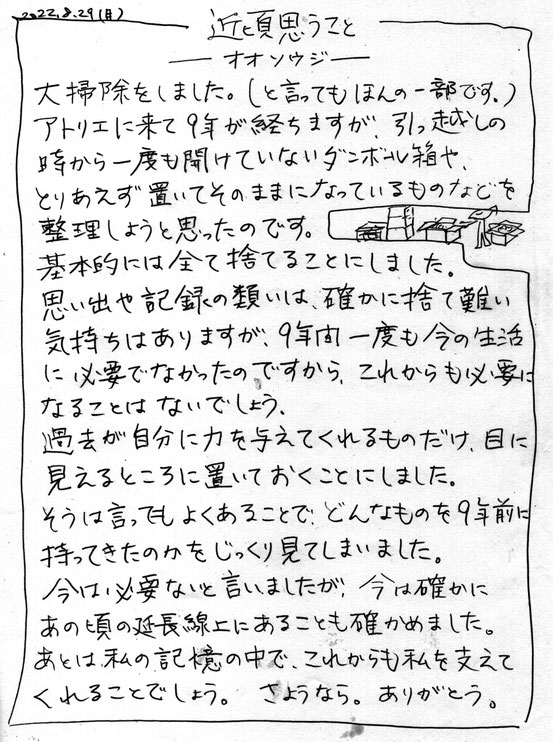 2022.8.29(月)
近頃思うこと
オオソウジ
大掃除をしました。(と言ってもほんの一部です。)
アトリエに来て9年が経ちますが、引っ越しの
時から一度も開けていないダンボール箱や、
とりあえず置いてそのままになっているものなどを
整理しようと思ったのです。
基本的には全て捨てることにしました。
思い出や記録の類いは、確かに捨て難い
気持ちはありますが、9年間一度も今の生活
に必要でなかったのですから、これからも必要に
なることはないでしょう。
過去が自分に力を与えてくれるものだけ、目に
見えるところに置いておくことにしました。
そうは言ってもよくあることで、どんなものを9年前に
持ってきたのかをじっくり見てしまいました。
今は必要ないと言いましたが、今は確かに
あの頃の延長線上にあることも確かめました。
あとは私の記憶の中で、これからも私を支えて
くれることでしょう。 さようなら。ありがとう。